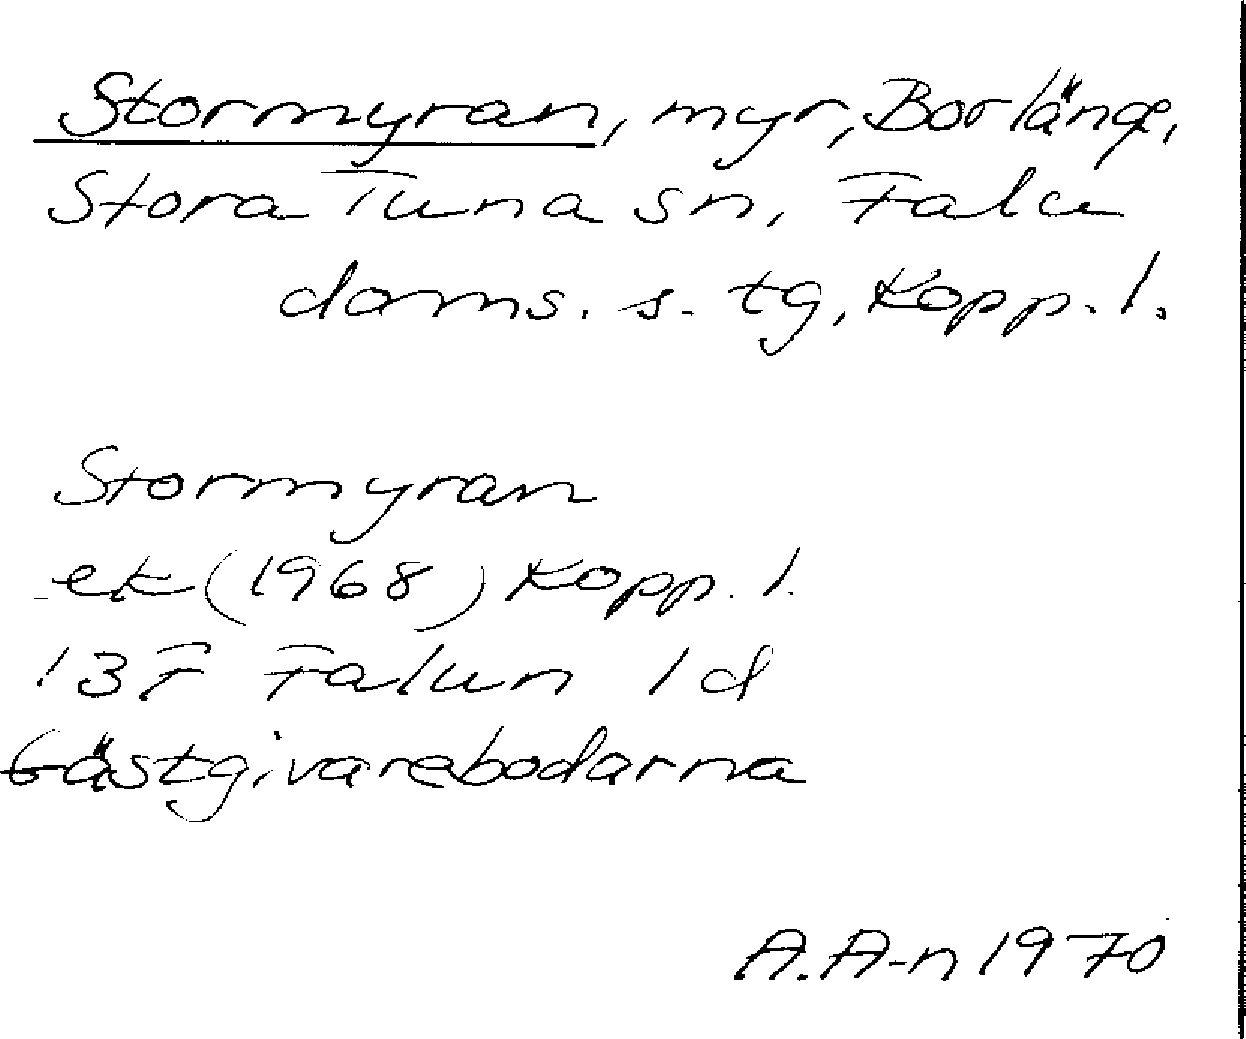 Stormyran, myr, Borlänge,
Stora Tuna sn, Falu
doms. s. tg, Kopp. l.
Stormyran
ek (1968) Kopp. l.
13F Falun 1 d
Gästgivarebodarna
A. A-n 1970